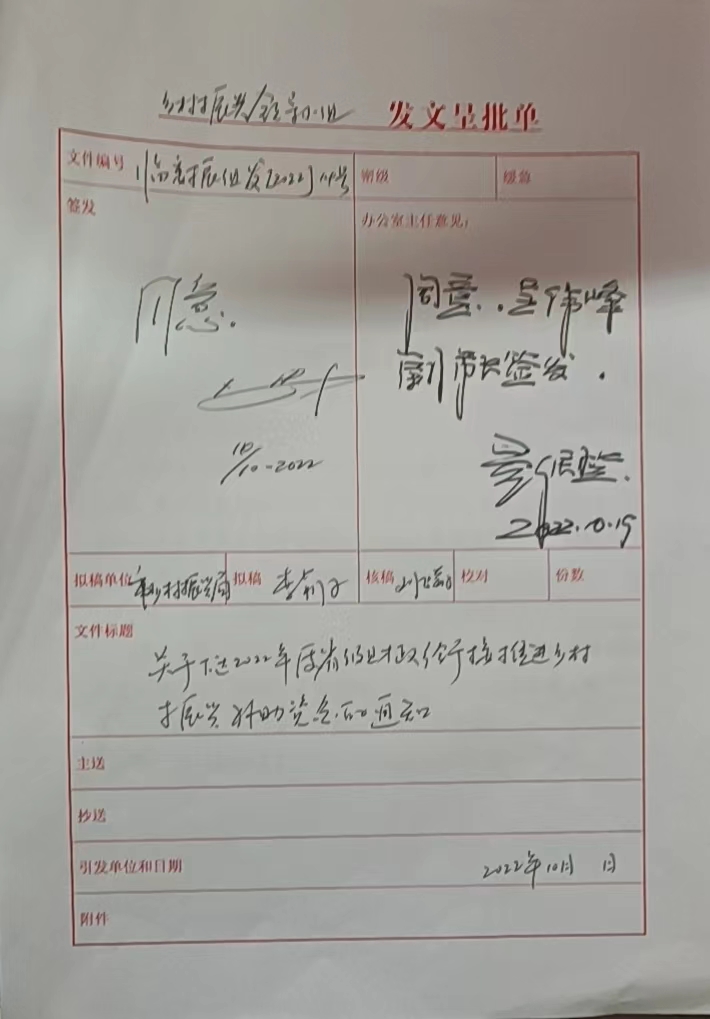 乡村振兴领导小组 发文呈批单
文件编号 振组发[2022]14号 密级 缓急
签发
同意.
10/10-2022
办公室主任意见:
同意. 呈伟峰
副市长签发.
2022.10.19
拟稿单位 市乡村振兴局 拟稿 核稿 校对 份数
文件标题
关于下达2022年度省级财政衔接推进乡村
振兴补助资金的通知
主送
抄送
引发单位和日期 2022年10月 日
附件